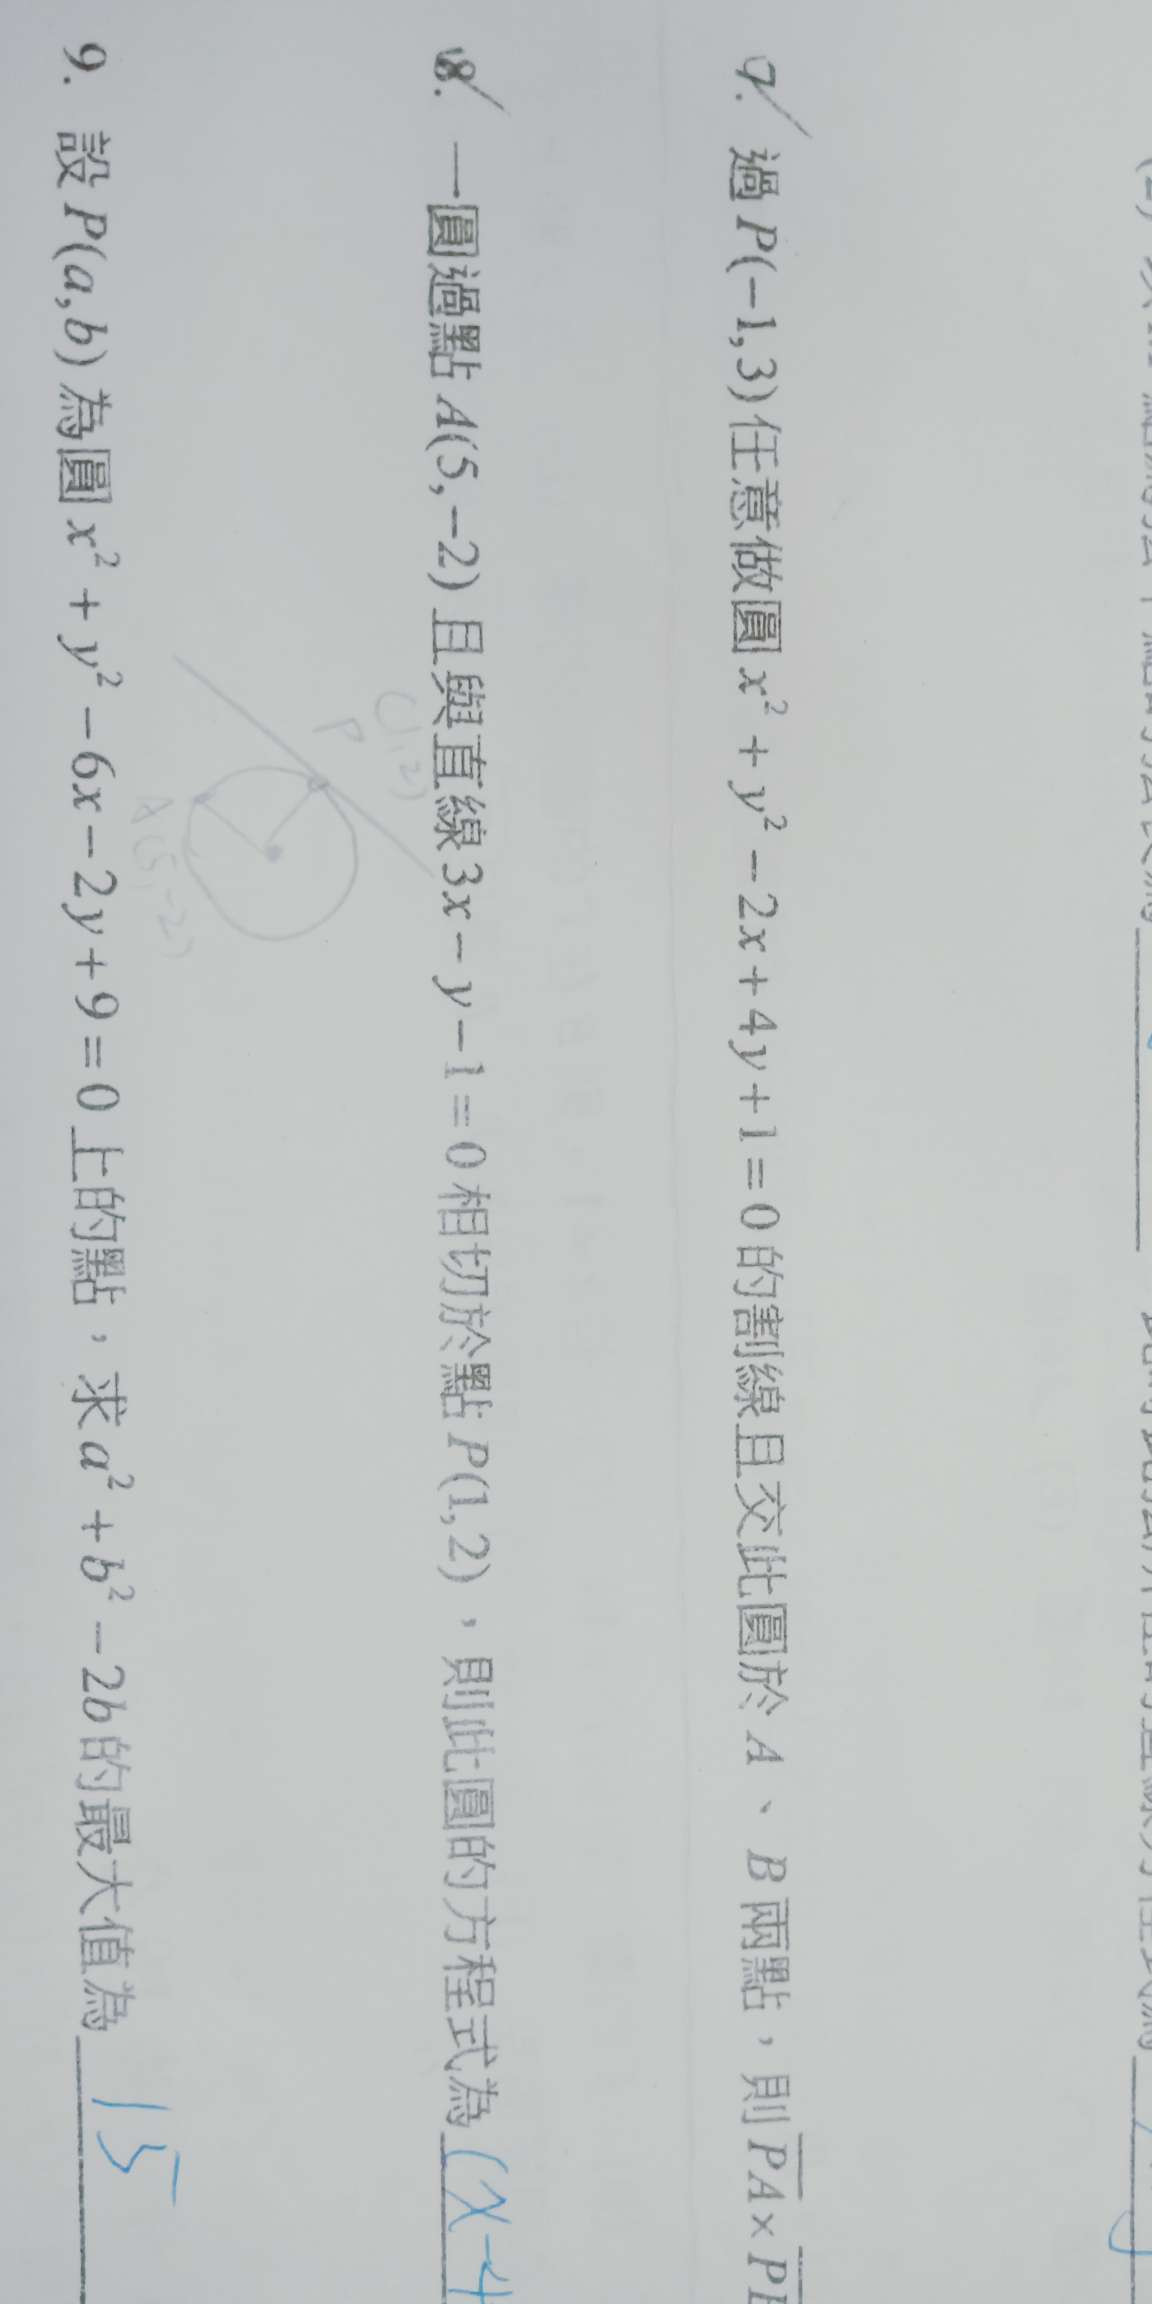 7. 過 P(-1,3) 任意做圓 x² + y² - 2x + 4y + 1 = 0 的割線且交此圓於 A、B 兩點，則 PA × P
8. 一圓過點 A(5,-2) 且與直線 3x - y - 1 = 0 相切於點 P(1,2)，則此圓的方程式為 (x-4
P
(1,2)
A(5,-2)
9. 設 P(a,b) 為圓 x² + y² - 6x - 2y + 9 = 0 上的點，求 a² + b² - 2b 的最大值為 15